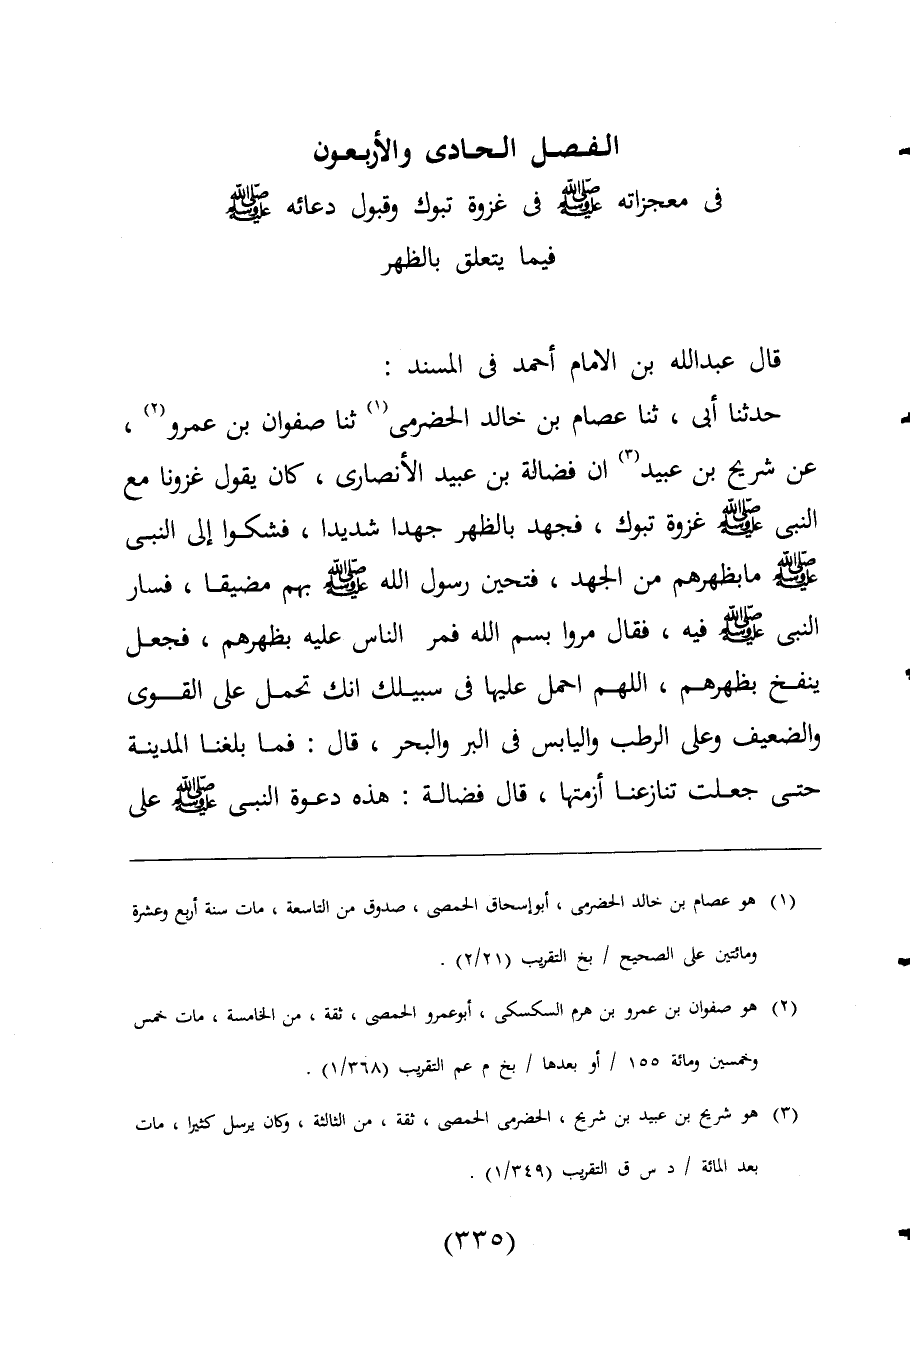 الفصل الحادى والأربعون
فى معجزاته ﷺ فى غزوة تبوك وقبول دعائه ﷺ
فيما يتعلق بالظهر
قال عبدالله بن الامام أحمد فى المسند :
حدثنا أبى ، ثنا عصام بن خالد الحضرمى(١) ثنا صفوان بن عمرو(٢) ،
عن شريح بن عبيد(٣) ان فضالة بن عبيد الأنصارى ، كان يقول غزونا مع
النبى ﷺ غزوة تبوك ، فجهد بالظهر جهدا شديدا ، فشكوا إلى النبى
ﷺ مابظهرهم من الجهد ، فتحين رسول الله ﷺ بهم مضيقا ، فسار
النبى ﷺ فيه ، فقال مروا بسم الله فمر الناس عليه بظهرهم ، فجعل
ينفخ بظهرهم ، اللهم احمل عليها فى سبيلك انك تحمل على القوى
والضعيف وعلى الرطب واليابس فى البر والبحر ، قال : فما بلغنا المدينة
حتى جعلت تنازعنا أزمتها ، قال فضالة : هذه دعوة النبى ﷺ على
(١) هو عصام بن خالد الحضرمى ، أبوإسحاق الحمصى ، صدوق من التاسعة ، مات سنة أربع وعشرة
ومائتين على الصحيح / بخ التقريب (٢/٢١) .
(٢) هو صفوان بن عمرو بن هرم السكسكى ، أبوعمرو الحمصى ، ثقة ، من الخامسة ، مات خمس
وخمسين ومائة ١٥٥ / أو بعدها / بخ م عم التقريب (١/٣٦٨) .
(٣) هو شريح بن عبيد بن شريح ، الحضرمى الحمصى ، ثقة ، من الثالثة ، وكان يرسل كثيرا ، مات
بعد المائة / د س ق التقريب (١/٣٤٩) .
(٣٣٥)